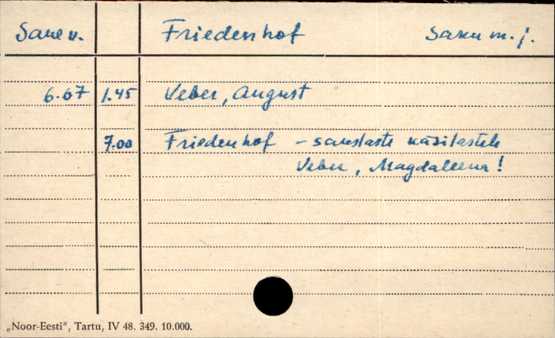 Saue v. Friedenhof Saku m. j.
6.67 1.45 Veber, August
7.00 Friedenhof – saustaste käsitastele
Veber, Magdaleena!
„Noor-Eesti", Tartu, IV 48. 349. 10.000.